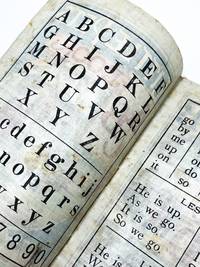 A B C D E F
G H I J K L
M N O P Q R
S T U V W
X Y Z
c d e f g h i j
n o p q r s
x y z
7 8 9 10
go
by
me
up
on do
it so
LES
He is up.
As we go.
It is so.
So we go.